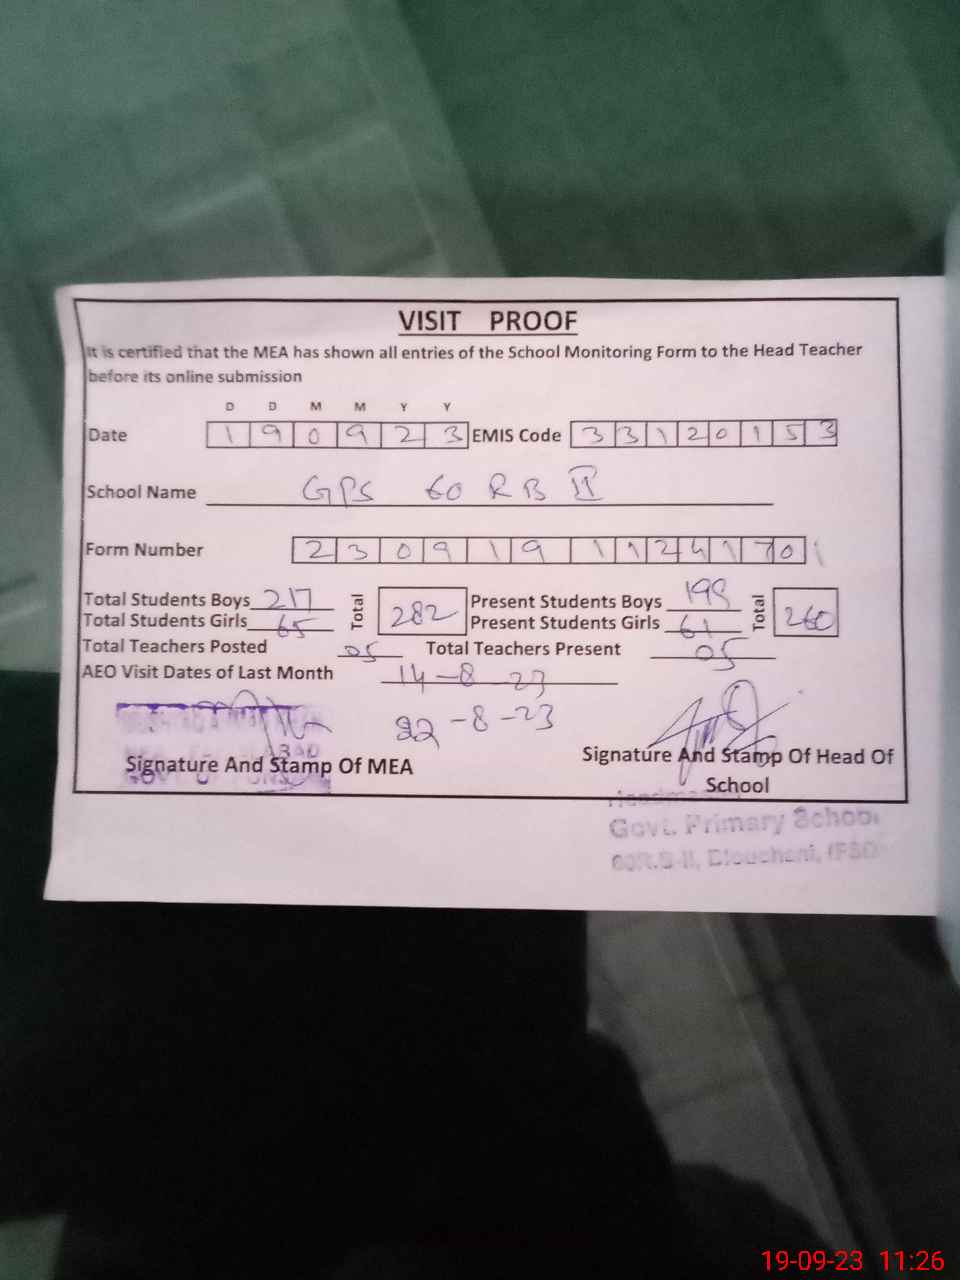 VISIT PROOF
It is certified that the MEA has shown all entries of the School Monitoring Form to the Head Teacher
before its online submission
D D M M Y Y
Date 1 9 0 9 2 3 EMIS Code 3 3 1 2 0 1 5 3
School Name GPS 60 R B II
Form Number 2 3 0 9 1 9 1 1 2 4 1 7 0 1
Total Students Boys 217 Total 282 Present Students Boys 199 Total 260
Total Students Girls 65 Present Students Girls 61
Total Teachers Posted 05 Total Teachers Present 05
AEO Visit Dates of Last Month 14-8-23
22-8-23
Signature And Stamp Of MEA
Signature And Stamp Of Head Of
School
Govt. Primary School
60R.B-II,
19-09-23 11:26